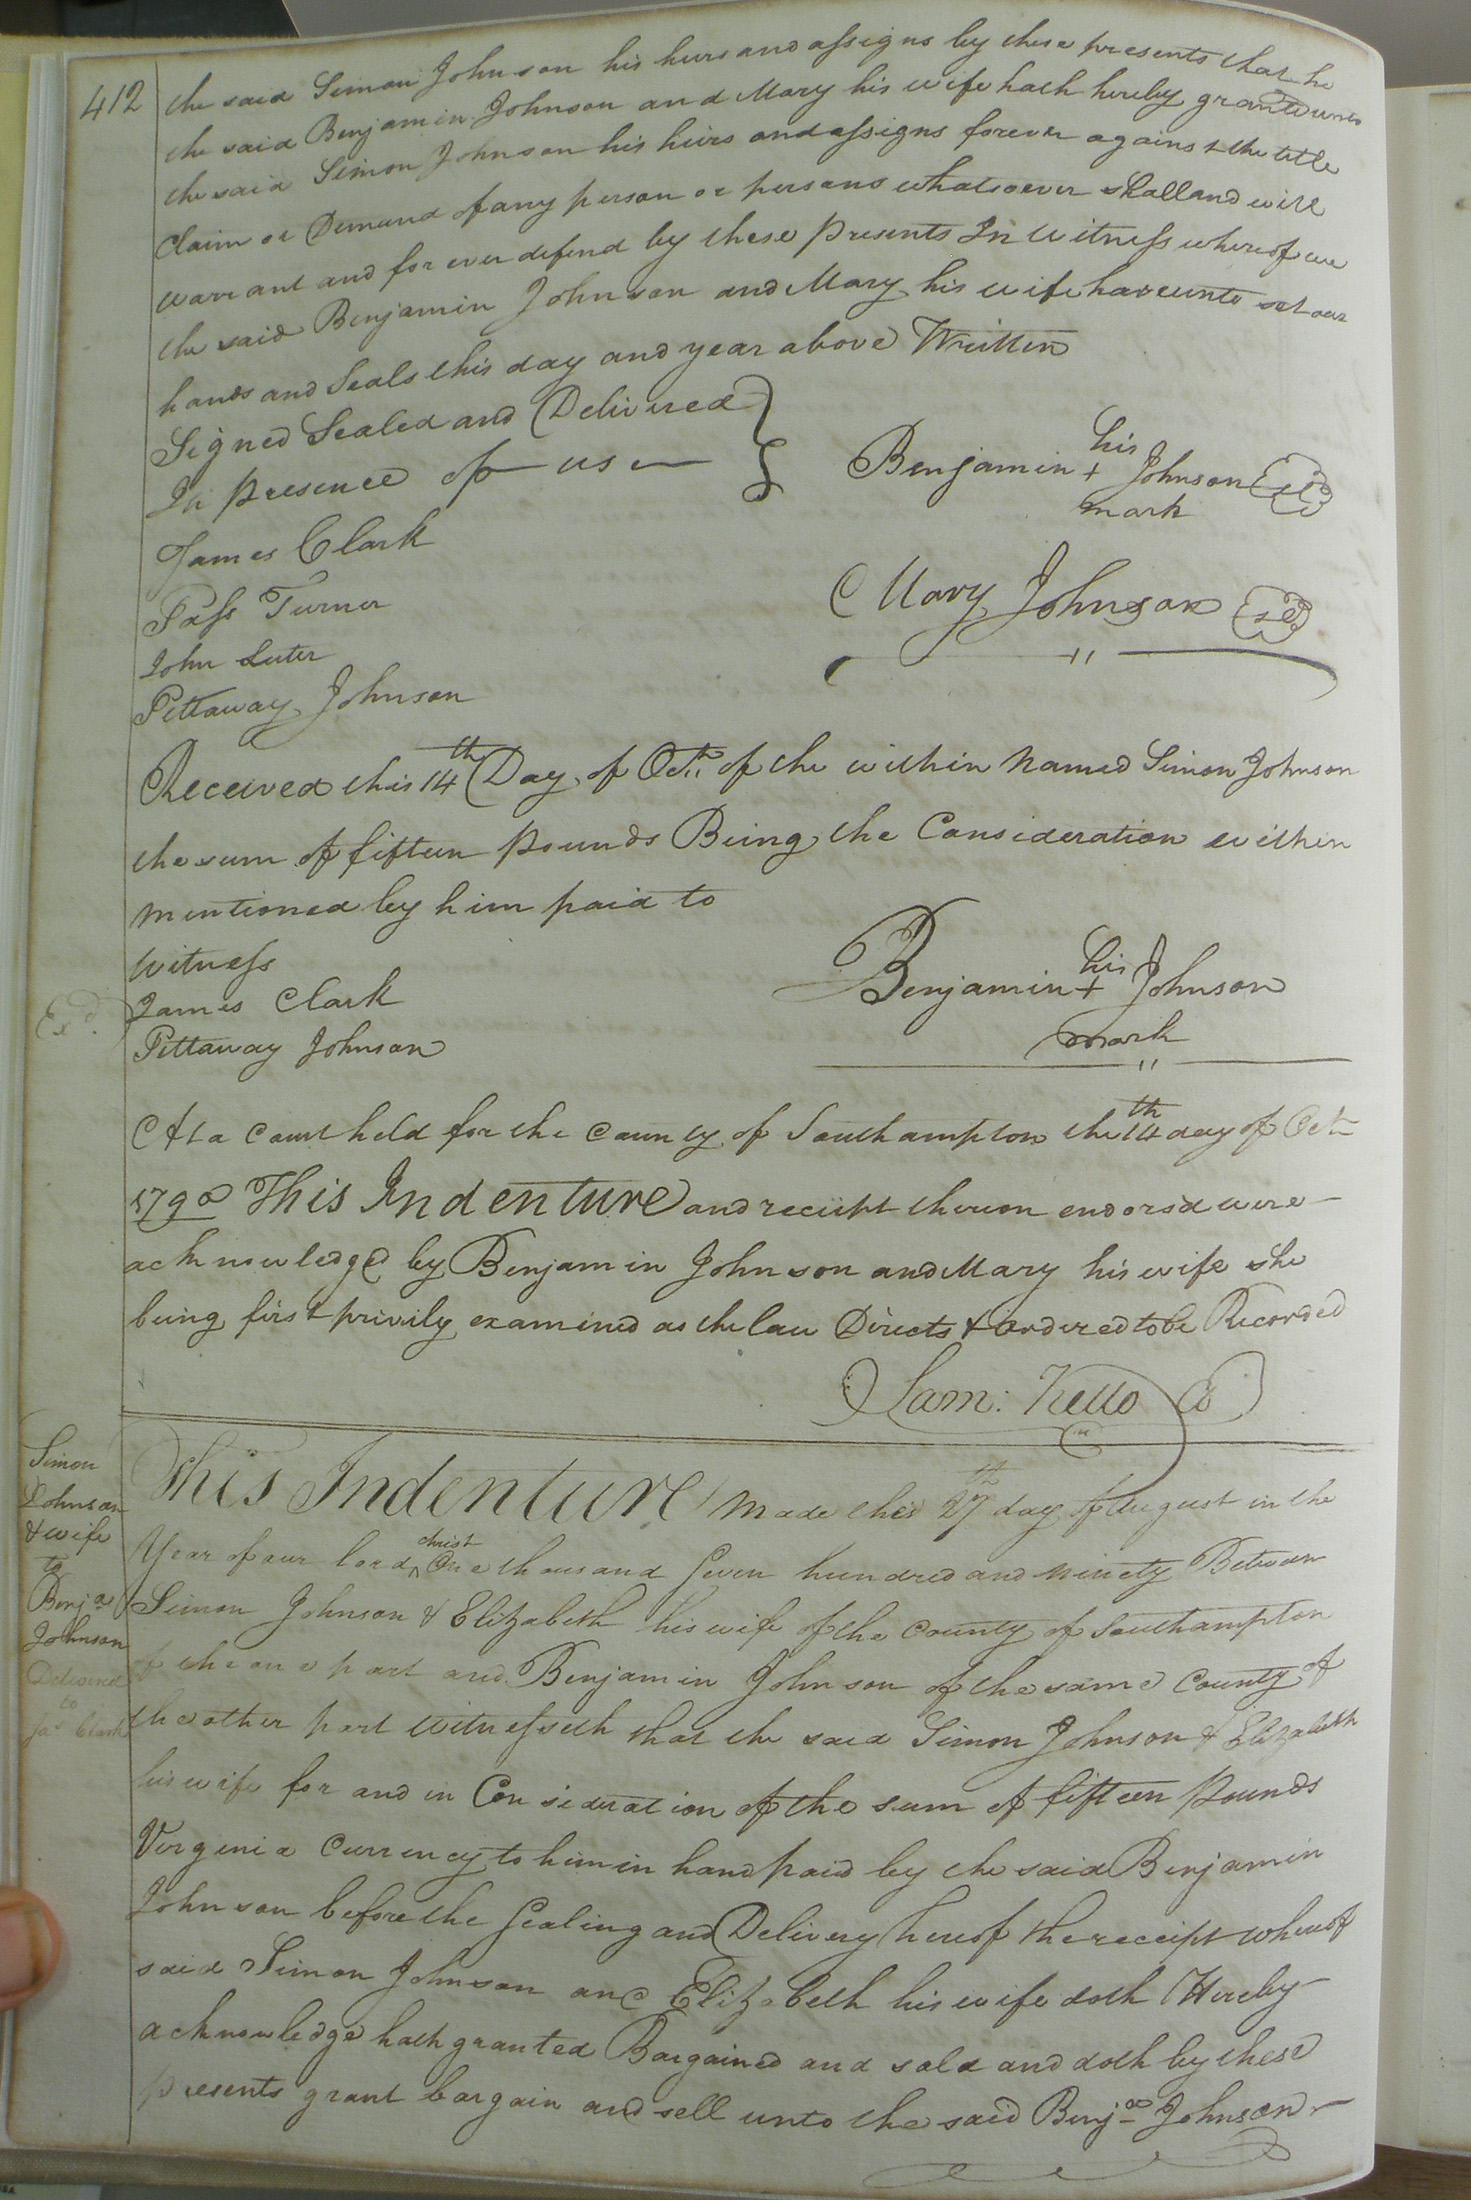 412
the said Simon Johnson his heirs and assigns by these presents that he
the said Benjamin Johnson and Mary his wife hath hereby granted unto
the said Simon Johnson his heirs and assigns forever against the title
Claim or Demand of any person or persons whatsoever shall and will
warrant and for ever defend by these presents In Witness whereof we
the said Benjamin Johnson and Mary his wife have unto set our
hands and Seals this day and year above Written
Signed Sealed and Delivered
In presence of us
Benjamin his + mark Johnson Seal
James Clark
Mary Johnson Seal
Pass Turner
John Luter
Pittaway Johnson
Received this 14th Day of Octr. of the within Named Simon Johnson
the sum of fifteen pounds Being the Consideration within
mentioned by him paid to
Witness
Benjamin his + mark Johnson
James Clark
Exd.
Pittaway Johnson
At a Court held for the County of Southampton the 14th day of Oct
1790 This Indenture and reciept thereon endorsd were
acknowledged by Benjamin Johnson and Mary his wife she
being first privily examined as the law Directs & ordered to be Recorded
Sam: Kello C
Simon
Johnson
& wife
to
Benja
Johnson
Delivered
to
Jas Clark
This Indenture Made this 27th day of August in the
Year of our lord christ One thousand Seven hundred and ninety Between
Simon Johnson & Elizabeth his wife of the County of Southampton
of the one part and Benjamin Johnson of the same County of
the other part Witnesseth that the said Simon Johnson & Elizabeth
his wife for and in Consideration of the sum of fifteen Pounds
Virginia Currency to him in hand paid by the said Benjamin
Johnson before the Sealing and Delivery hereof the receipt whereof
said Simon Johnson and Elizabeth his wife doth Hereby
acknowledge hath granted Bargained and sold and doth by these
presents grant bargain and sell unto the said Benja Johnson